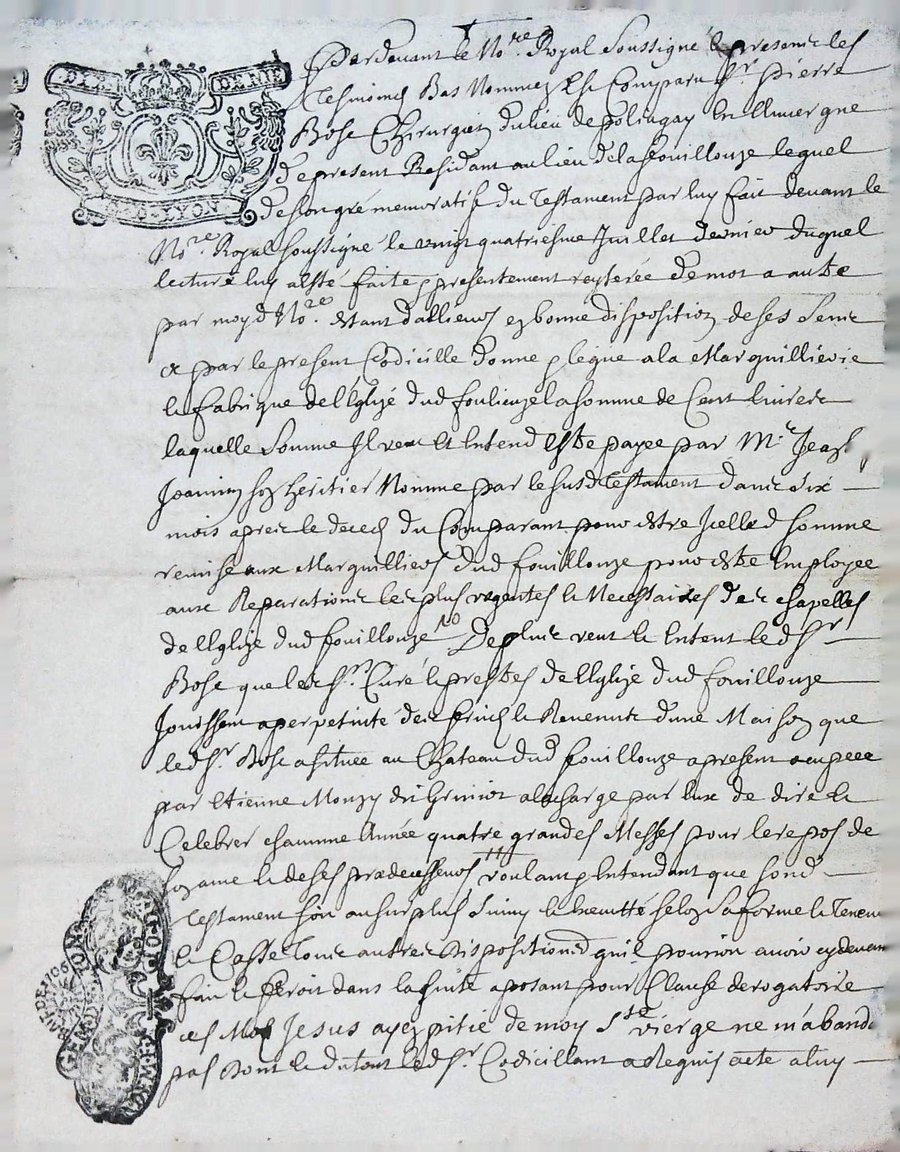 GEN DE LYON
Pardevant le No.re Royal soussigné & presents les
Tesmoins Bas Nommez Est Comparu Sr. pierre
Bose Chirurgien du lieu de polingay En Auvergne
de present Residant au lieu de la fouillouze lequel
de son gré memoratif du Testament par luy fait devant le
No.re Royal soussigné le vingt quatriesme Juillet dernier duquel
lecture luy a Esté faite & presentement reyterée de mot a autre
par moyd No.re Estant d'allieurs en bonne disposition de ses sens
a par le present Codicille donne & legue a la Marguillierie
& fabrique de l'Eglize dud fouliouze la somme de Cent livres
laquelle somme Il veut Et Entend Estre payee par M.e Jean
Joannin son heritier Nommé par le susd Testament dans six
mois apres le deces du Comparant pour Estre Icelled somme
remise aux Marguilliers dud fouillouze pour Estre Employee
aux Reparations les plus urgentes & Necessaires des chapelles
de l'Eglize dud fouillouze De plus veut & Entent led Sr.
Bose que les Srs. Curé & prestres de l'Eglize dud fouillouze
Jouissent a perpetuité des fruits & Revenuts d'une Maison que
led Sr. Bose a située au Chateau dud fouillouze a present ocupeee
par Etienne Mouzy dit Griniot a la charge par Eux de dire &
Celebrer chacunne Année quatre grandes Messes pour le repos de
son ame & de ses predecesseurs voulant & Entendant que sond
Testament soit au surplus suivy & Executté selon sa forme & Teneur
& Casse Tous autres dispositions qu'il pourroit avoir cy devant
fait & feroit dans la suite aposant pour Clause derogatoire
ces Mots Jesus ayez pitié de moy Ste vierge ne m'aband
pas Dont & du tout led Sr. Codicillant a Requis acte a luy